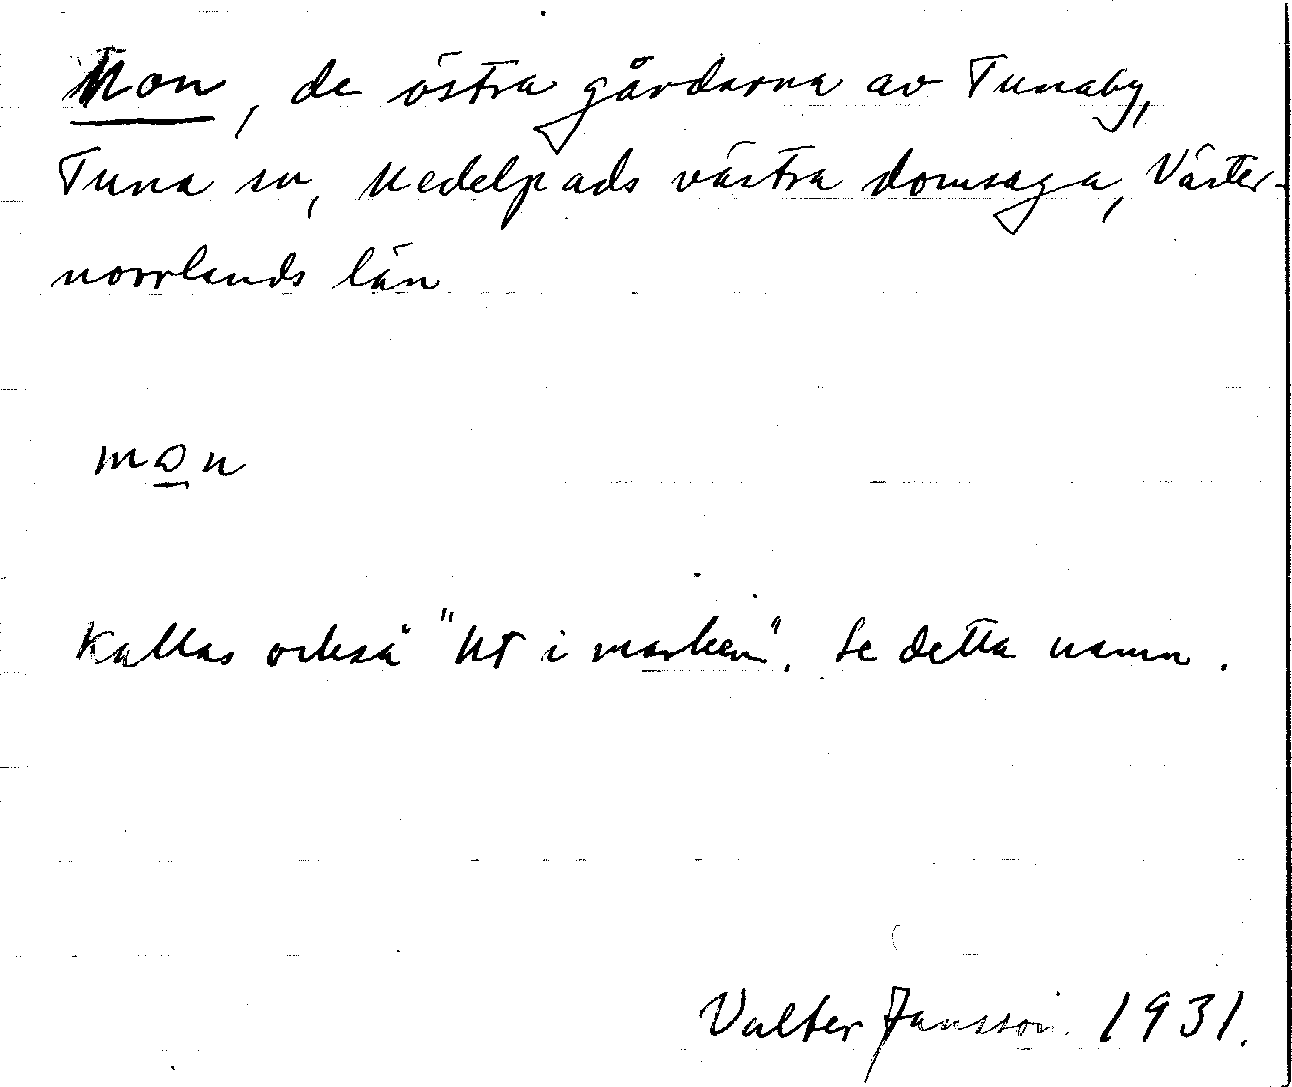 Mon, de östra gårdarna av Tunaby,
Tuna sn, Medelpads västra domsaga, Väster-
norrlands län
mon
Kallas också "Ut i marken". Se detta namn.
Valter Jansson 1931.